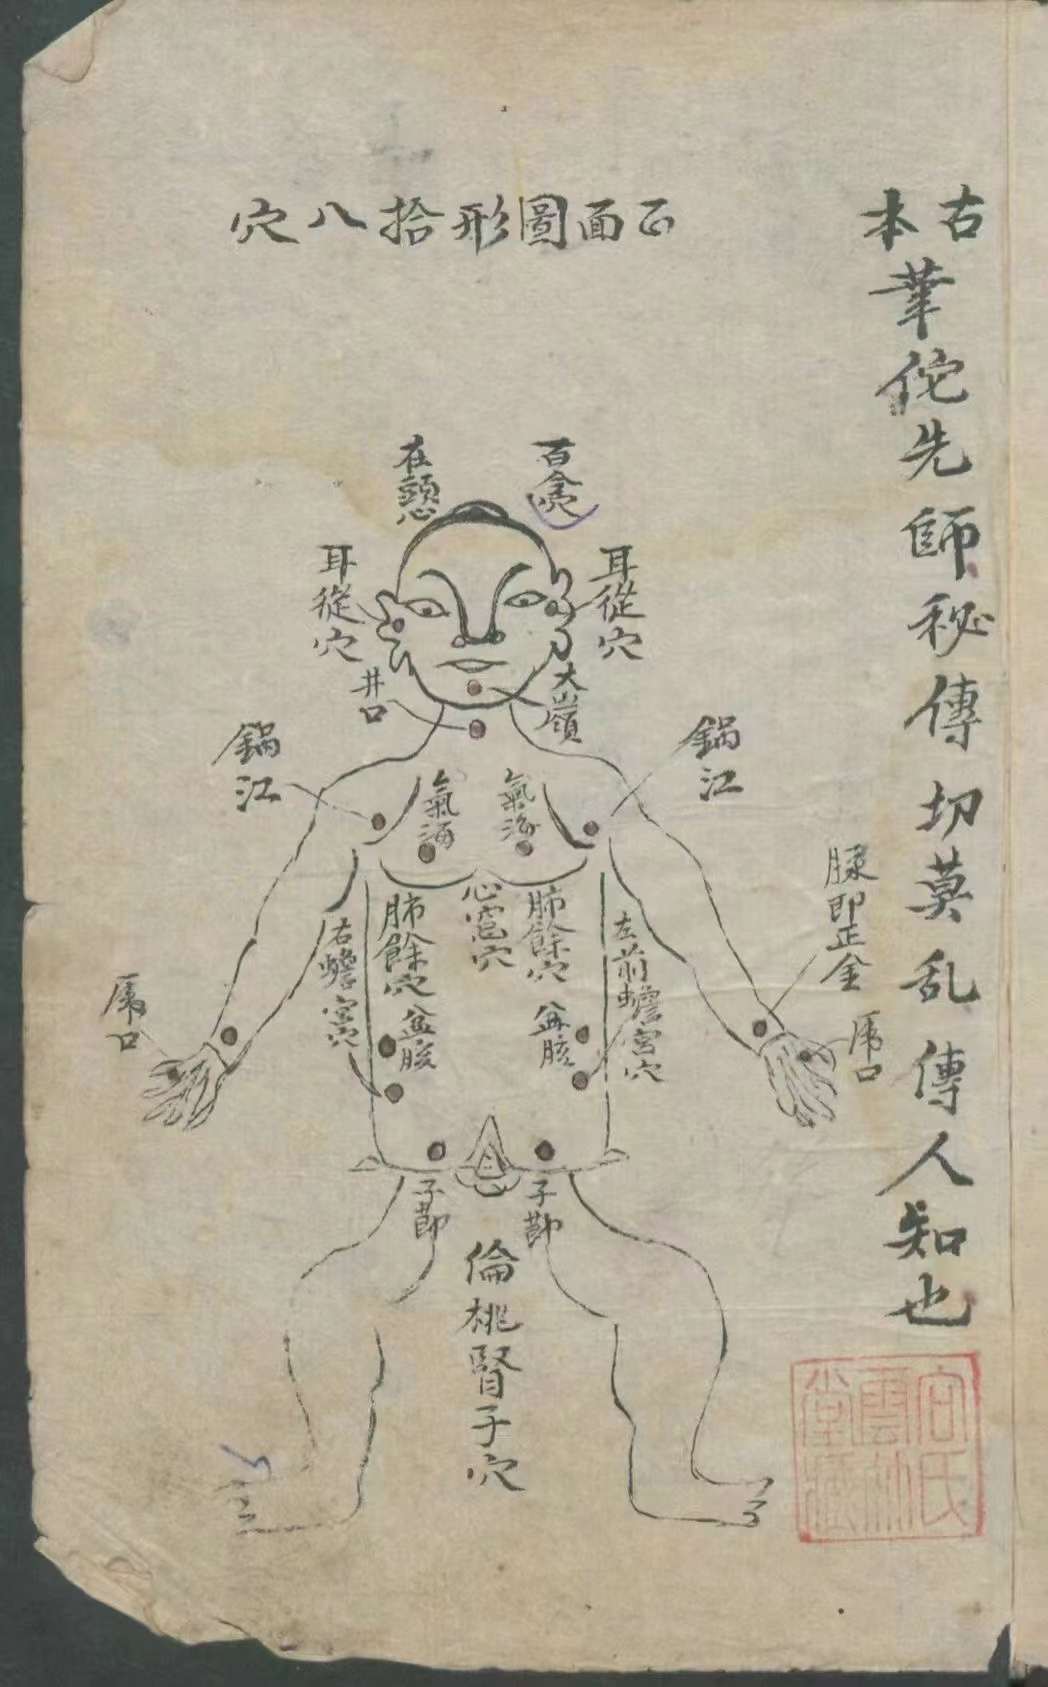 古本
華佗先師秘傳切莫乱傳人知也
正面圖形拾八穴
百會
在頭心
耳從穴
耳從穴
大嶺
井口
鍋江
鍋江
氣海
氣海
心窩穴
肺餘穴
肺餘穴
盆胲
盆胲
左前蟾宮穴
右蟾宮穴
脉即正金
虎口
虎口
子節
子節
倫桃腎子穴